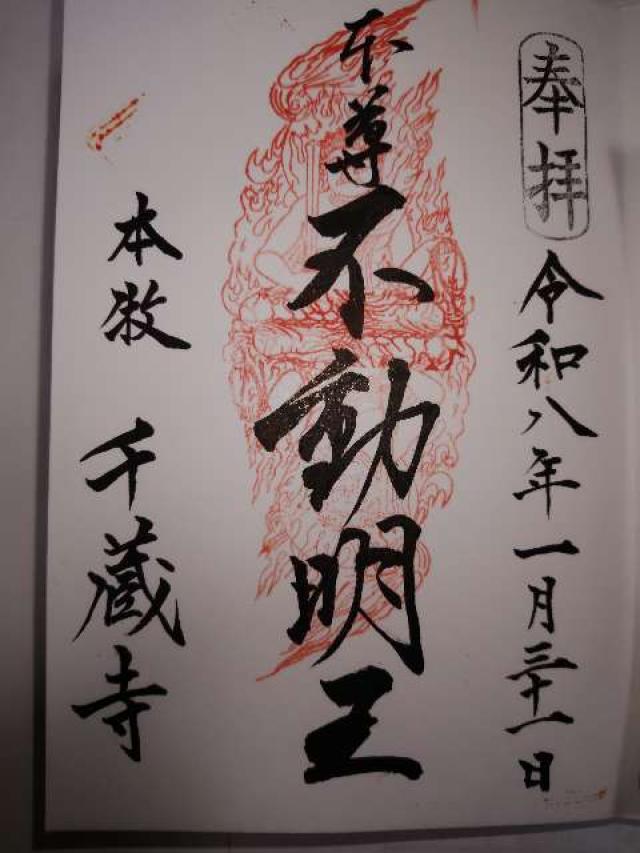 奉拝
令和八年一月三十一日
本尊
不動明王
本牧 千蔵寺